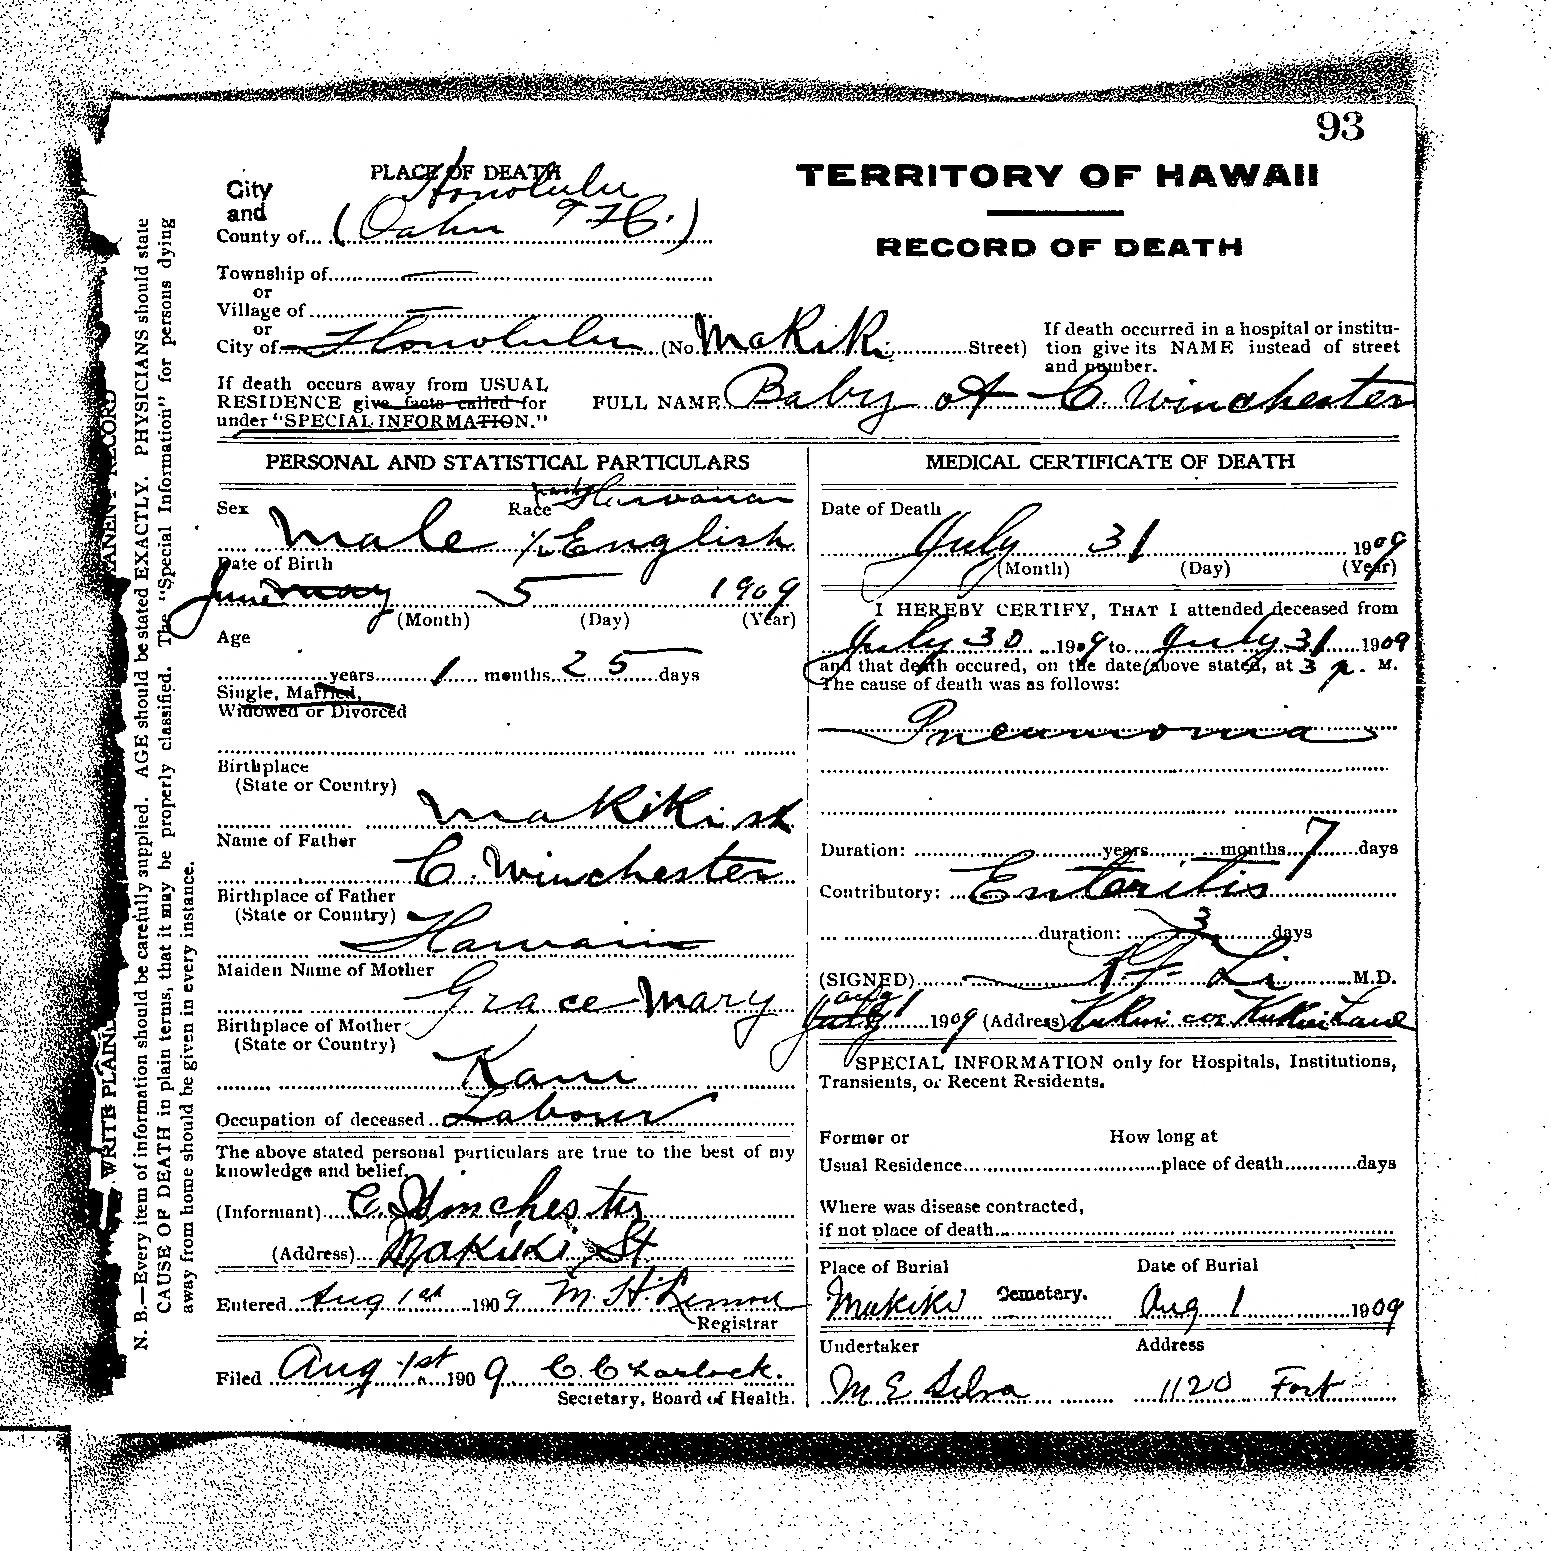 93
PLACE OF DEATH
TERRITORY OF HAWAII
RECORD OF DEATH
City and County of Honolulu
(Oahu T H.)
Township of
or
Village of
or
City of Honolulu (No. Makiki Street)
If death occurred in a hospital or institu-
tion give its NAME instead of street
and number.
If death occurs away from USUAL
RESIDENCE give facts called for
under "SPECIAL INFORMATION."
FULL NAME Baby of C. Winchester
PERSONAL AND STATISTICAL PARTICULARS
Sex Race party Hawaiian
Male 1/2 English
Date of Birth
June May 5 1909
(Month) (Day) (Year)
Age
years 1 months 25 days
Single, Married,
Widowed or Divorced
Birthplace
(State or Country)
Makiki st
Name of Father
C. Winchester
Birthplace of Father
(State or Country)
Hawaii
Maiden Name of Mother
Grace Mary
Birthplace of Mother
(State or Country)
Kaui
Occupation of deceased Labour
The above stated personal particulars are true to the best of my
knowledge and belief.
(Informant) C. Winchester
(Address) Makiki St
Entered Aug 1st 1909 M. H. Lemon
Registrar
Filed Aug 1st 1909 C Charlock.
Secretary, Board of Health.
MEDICAL CERTIFICATE OF DEATH
Date of Death
July 31 1909
(Month) (Day) (Year)
I HEREBY CERTIFY, THAT I attended deceased from
July 30 1909 to July 31 1909
and that death occured, on the date above stated, at 3 p. M.
The cause of death was as follows:
Pneumonia
Duration: years months 7 days
Contributory: Enteritis
duration: 3 days
(SIGNED) K F Li M.D.
July Aug 1 1909 (Address) Kukui cor Kukui Lane
SPECIAL INFORMATION only for Hospitals, Institutions,
Transients, or Recent Residents.
Former or How long at
Usual Residence place of death days
Where was disease contracted,
if not place of death
Place of Burial Date of Burial
Makiki Cemetary. Aug 1 1909
Undertaker Address
M E Silva 1120 Fort
WRITE PLAIN RECORD
N. B.—Every item of information should be carefully supplied. AGE should be stated EXACTLY. PHYSICIANS should state
CAUSE OF DEATH in plain terms, that it may be properly classified. The "Special Information" for persons dying
away from home should be given in every instance.